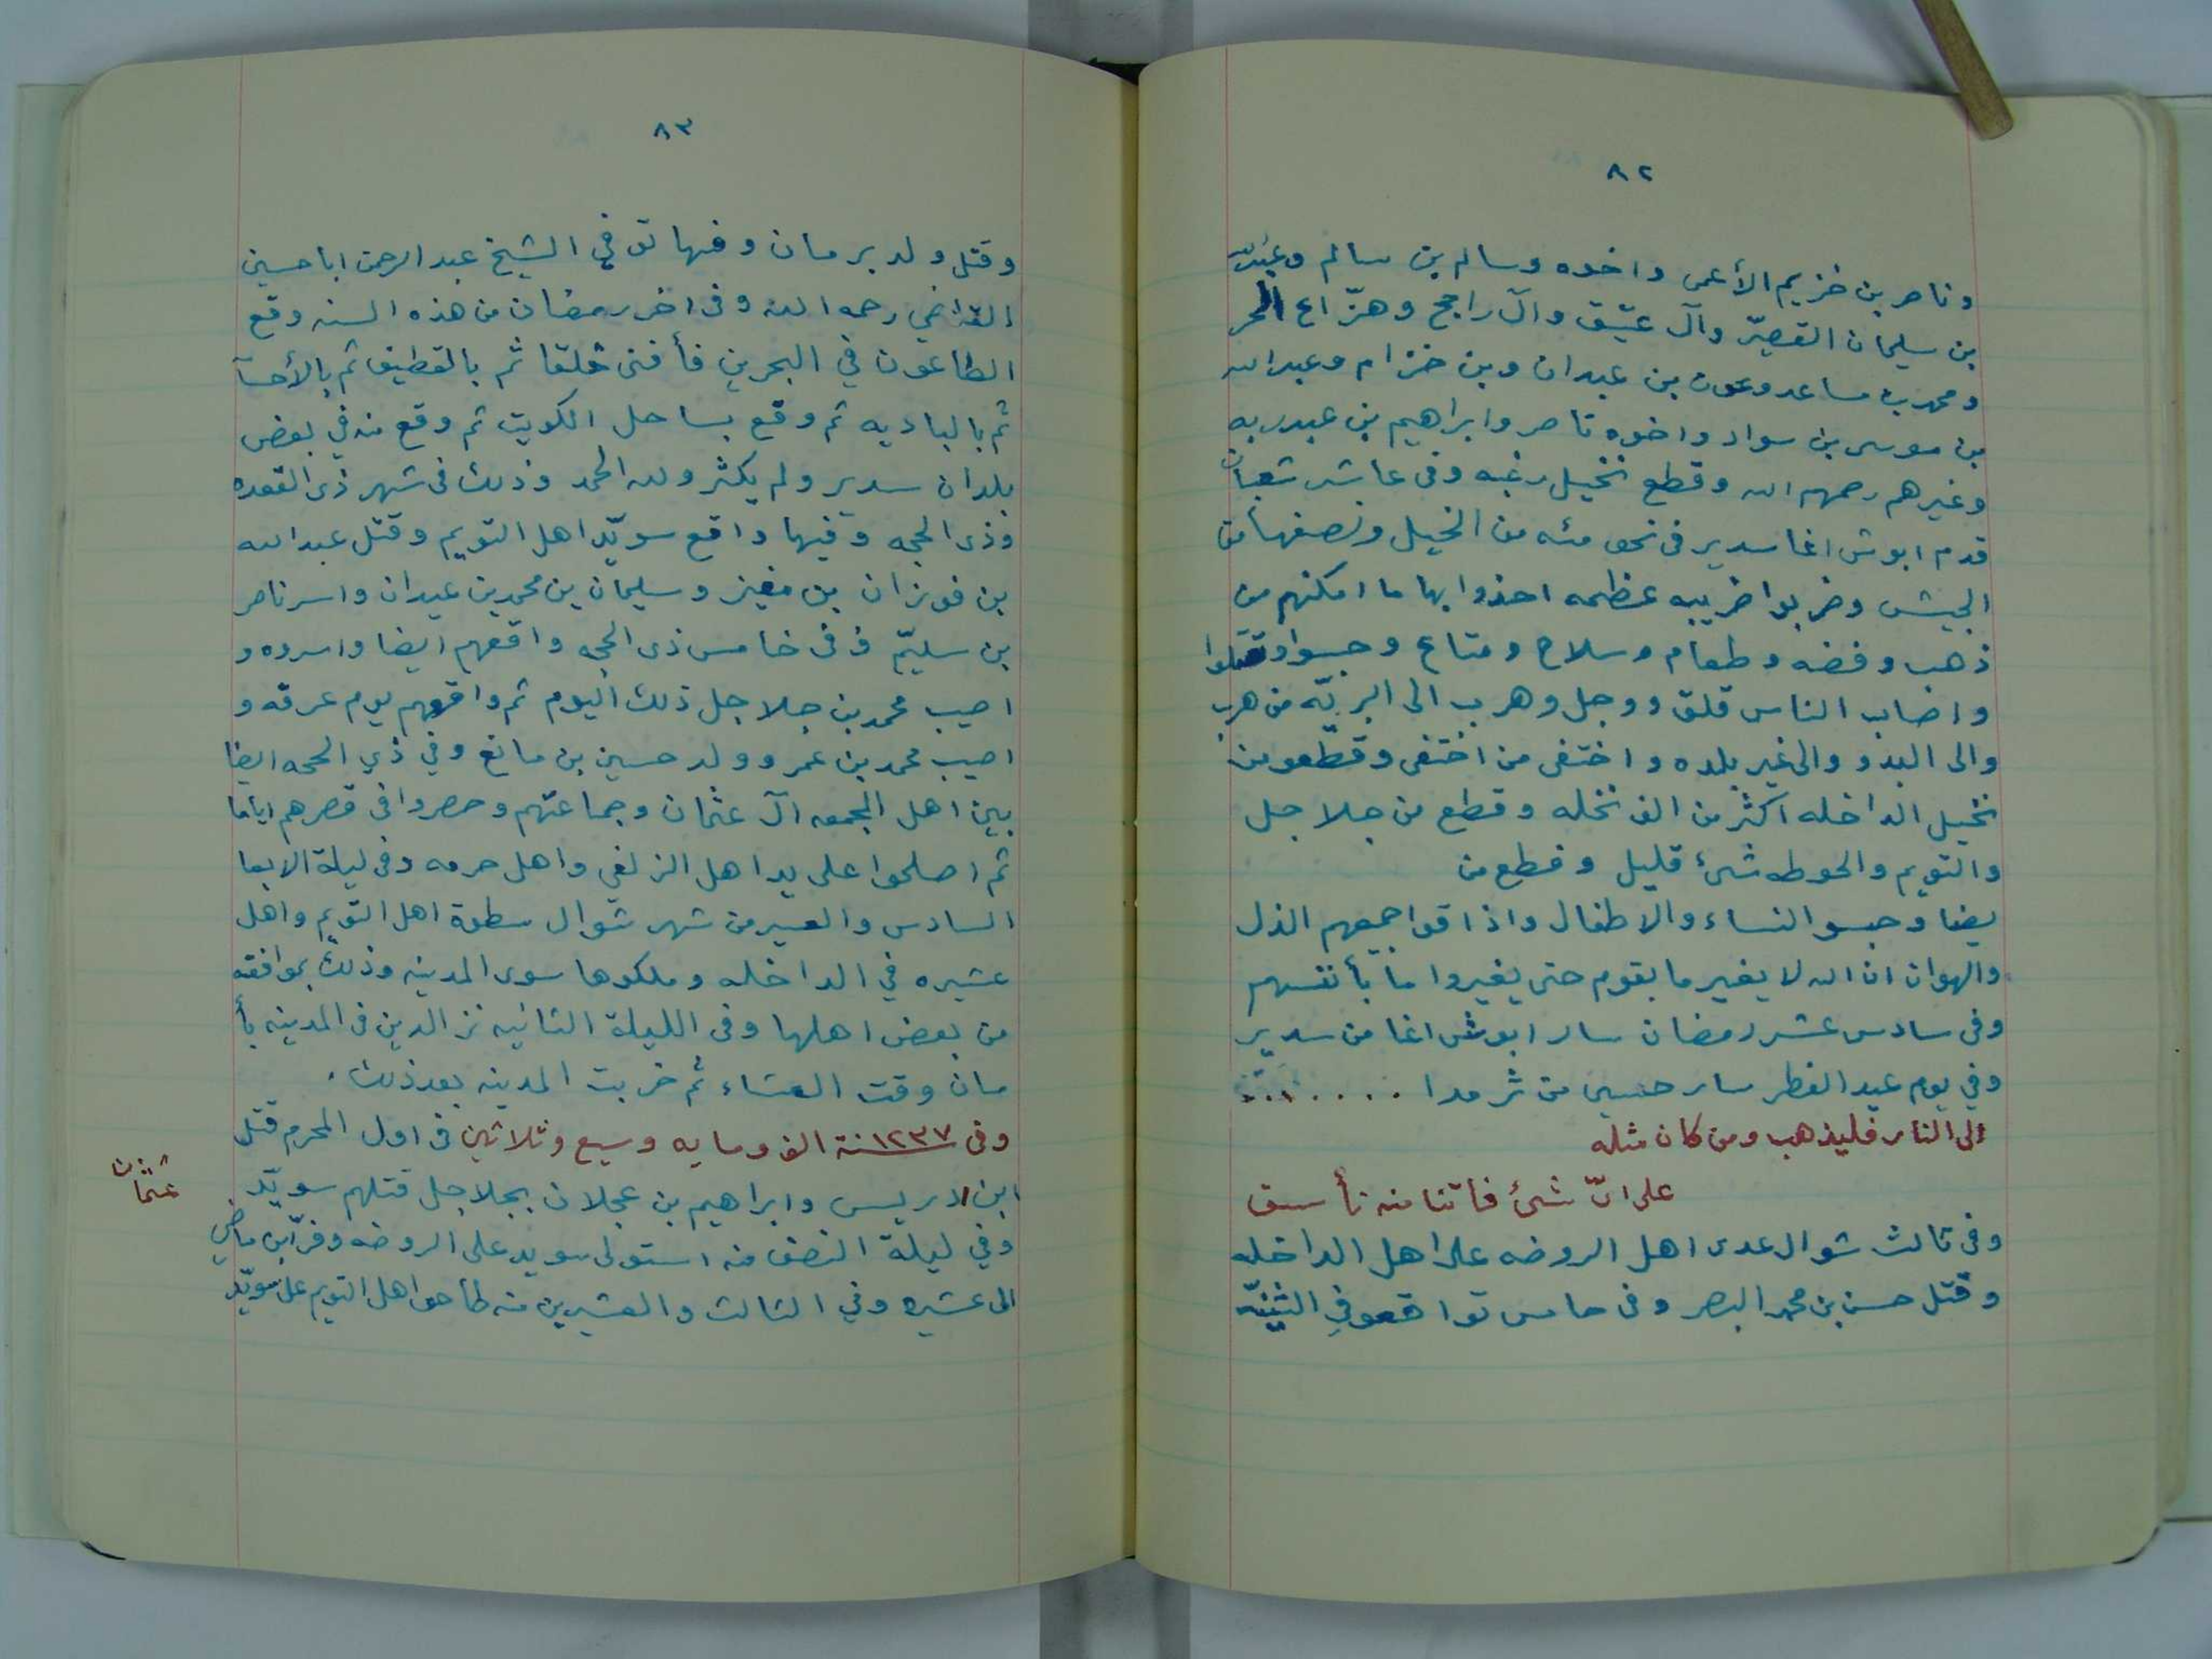 ٨٢
وناصر بن خزيم الأعمى واخوه وسالم بن سالم وعبدالله
بن سليمان القصيّر وآل عيّيق وآل راجح وهزّاع الحر
ومحمد بن مساعد وعون بن عبدان وبن خزام وعبدالله
بن موسى بن سواد واخوه ناصر وابراهيم بن عبدربه
وغيرهم رحمهم الله وقطع نخيل رغبه وفى عاشر شعبان
قدم ابوش اغا سدير فى نحو مئه من الخيل ونصفها من
الجيش وضربوا ضريبه عظمه اخذوا بها ما امكنهم من
ذهب وفضه وطعام وسلاح ومتاع وحبسوا وقتلوا
واصاب الناس قلق ووجل وهرب الى البريّه من هرب
والى البدو والى غير بلده واختفى من اختفى وقطّعو من
نخيل الداخله اكثر من الف نخله وقطع من جلاجل
والتويم والحوطه شئ قليل وقطع من
يضا وحبسو النساء والاطفال واذاقوا جميعهم الذل
والهوان ان الله لا يغير ما بقوم حتى يغيروا ما بأنفسهم
وفى سادس عشر رمضان سار ابوش اغا من سدير
وفي يوم عيد الفطر سار حسين من ثرمدا . . . . . . . .
الى النار فليذهب ومن كان مثله
على ايّ شئ فاتنا منه نأسف
وفى ثالث شوال عدى اهل الروضه على اهل الداخله
وقتل حسن بن محمد البصر وفى خامس تواقعو في الثنيّه
٨٣
وقتل ولد برمان وفيها توفي الشيخ عبد الرحمن اباحسين
القاضي رحمه الله وفى اخر رمضان من هذه السنه وقع
الطاعون في البحرين فأفنى خلقا ثم بالقطيف ثم بالأحسآ
ثم بالباديه ثم وقع بساحل الكويت ثم وقع منه في بعض
بلدان سدير ولم يكثر ولله الحمد وذلك فى شهر ذى القعده
وذى الحجه وفيها واقع سويّد اهل التويم وقتل عبدالله
بن فوزان بن مغيز وسليمان بن محمد بن عيدان واسر ناصر
بن سليّم وفى خامس ذى الحجه واقعهم ايضا واسروه و
اصيب محمد بن جلاجل ذلك اليوم ثم واقعهم يوم عرفه و
اصيب محمد بن عمر وولد حسين بن مانع وفي ذي الحجه ايضا
بين اهل المجمعه آل عثمان وجماعتهم وحصروا فى قصرهم اياما
ثم اصلحوا على يد اهل الزلفي واهل حرمه وفى ليلة الابعا
السادس والعسير من شهر شوال سطوة اهل التويم واهل
عشيره في الداخله وملكوها سوى المدينه وذلك بموافقه
من بعض اهلها وفى الليلة الثانيه نز الدين فى المدينه بأ
مان وقت العشاء ثم خربت المدينه بعد ذلك .
وفى سنة ١٢٣٧ الف ومايه وسبع وثلاثين فى اول المحرم قتل
ابن ادريس وابراهيم بن عجلان بجلاجل قتلهم سويّد
عثمان
وفي ليلة النصف منه استولى سويد على الروضه وفرّ ابن ماضي
الى عشيره وفي الثالث والعشيرين منه طاحوا اهل التويم على سويّد